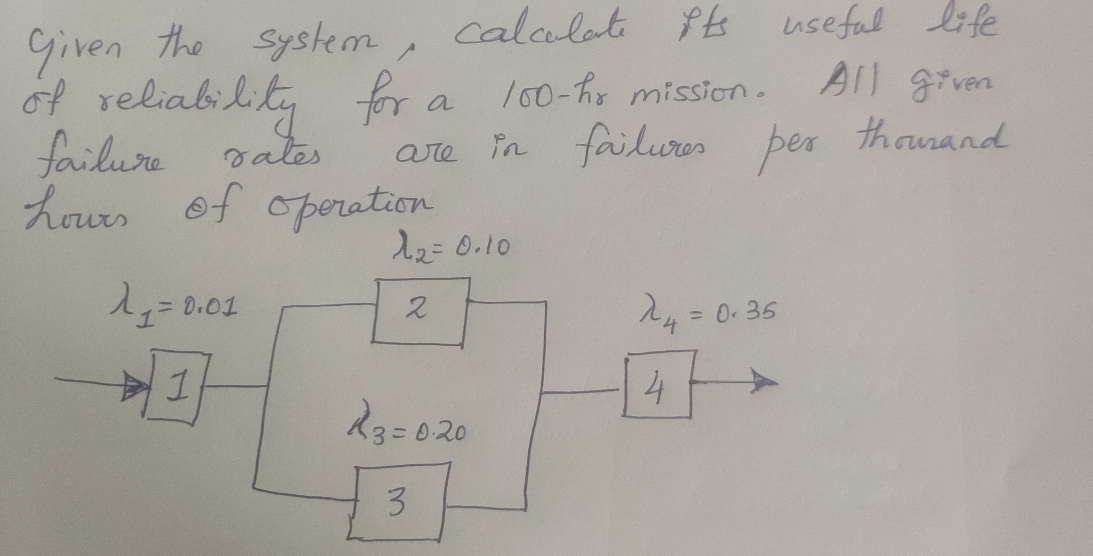 Given the system, calculate its useful life
of reliability for a 100-hr mission. All given
failure rates are in failures per thousand
hours of operation
λ2 = 0.10
λ1 = 0.01
2
λ4 = 0.35
1
4
λ3 = 0.20
3